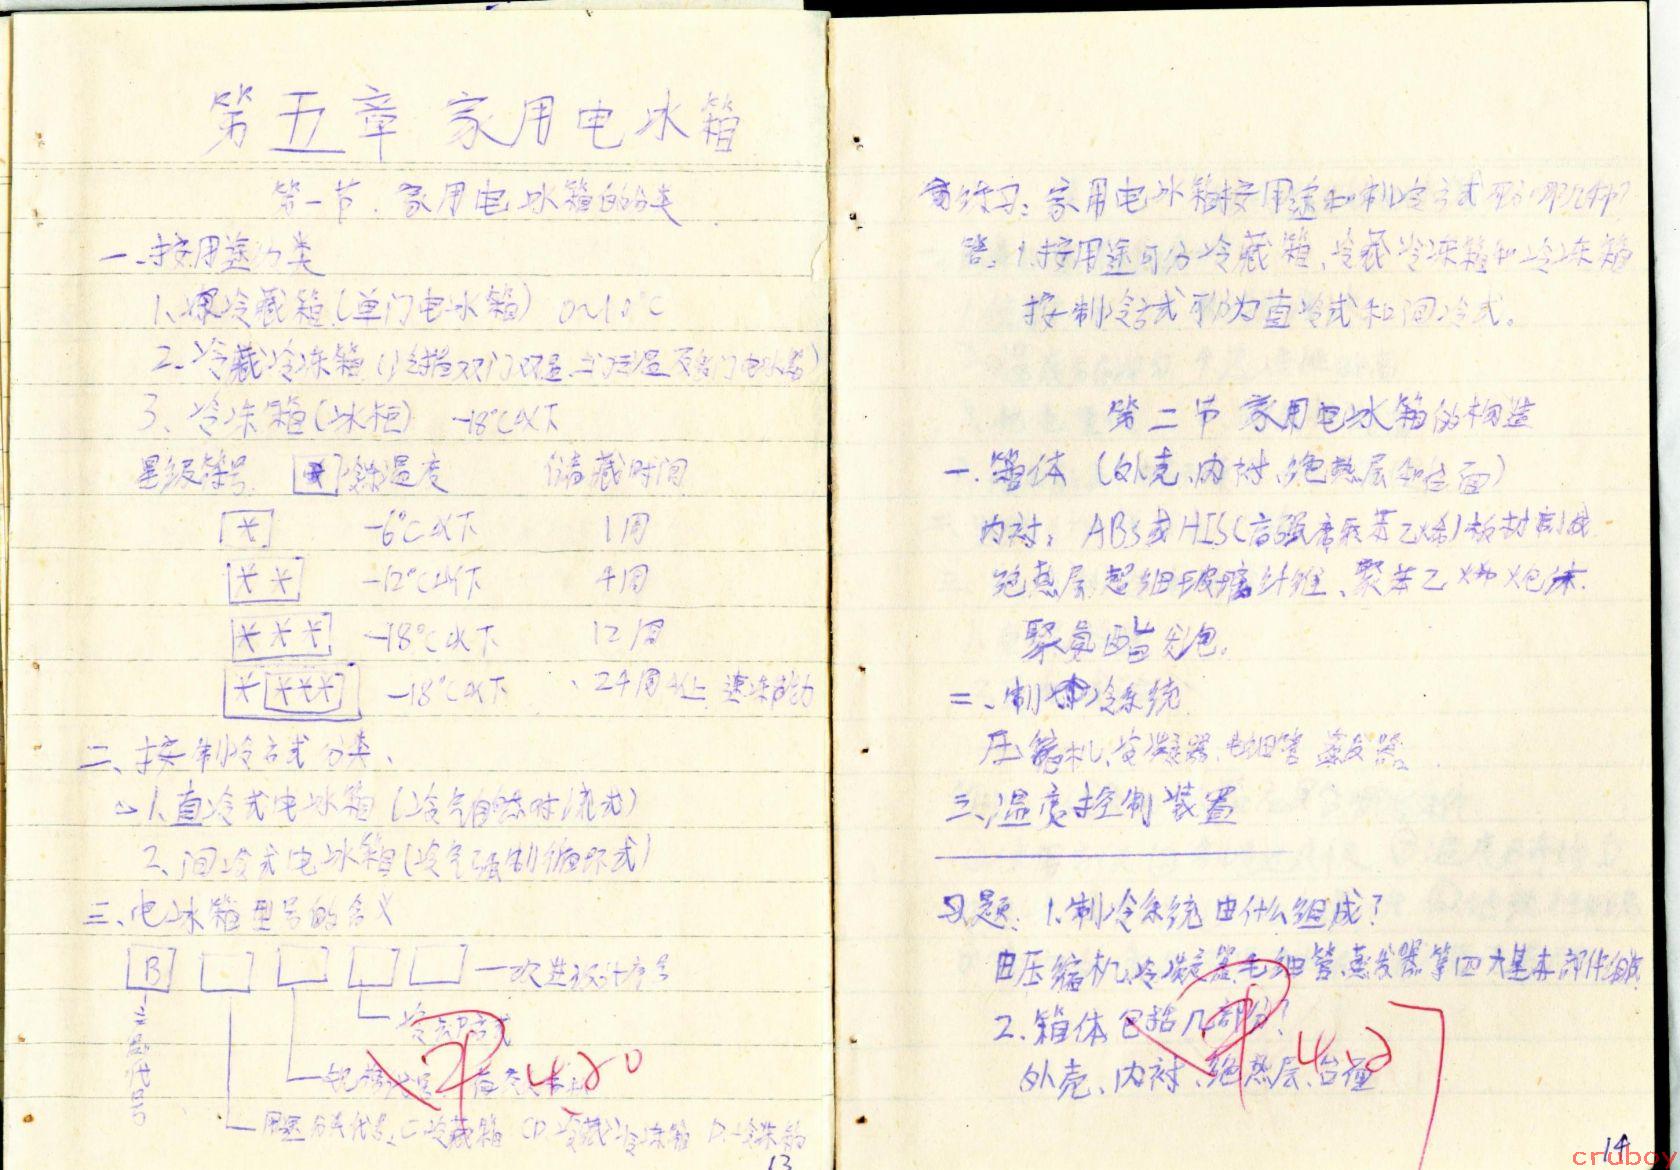 第五章 家用电冰箱
第一节. 家用电冰箱的分类
一、按用途分类
1、冷藏箱(单门电冰箱) 0~10℃
2、冷藏冷冻箱(包括双门双温、三门三温及多门电冰箱)
3、冷冻箱(冰柜) -18℃以下
星级符号 温度 储藏时间
[*] -6℃以下 1周
[**] -12℃以下 4周
[***] -18℃以下 12周
[*[***]] -18℃以下 24周以上 速冻能力
二、按制冷方式分类、
△1、直冷式电冰箱(冷气自然对流式)
2、间冷式电冰箱(冷气强制循环式)
三、电冰箱型号的含义
B 改进设计序号
冷却方式
规格代号
用途分类代号、C冷藏箱 CD、冷藏冷冻箱 D、冷冻箱
产品代号
阅 4.20
13
练习:家用电冰箱按用途和制冷方式可分哪几种?
答:1.按用途可分冷藏箱、冷藏冷冻箱和冷冻箱
按制冷方式可分为直冷式和间冷式。
第二节 家用电冰箱的构造
一.箱体(外壳、内衬、绝热层和台面)
内衬:ABS或HIS(高强度聚苯乙烯)板材制成
绝热层 超细玻璃纤维、聚苯乙烯泡沫.
聚氨酯发泡.
二、制冷系统
压缩机、冷凝器、毛细管 蒸发器。
三、温度控制装置
习题:1.制冷系统由什么组成?
由压缩机、冷凝器、毛细管、蒸发器等四大基本部件组成
2.箱体包括几部分?
外壳、内衬、绝热层、台面
阅 4.20
14
cruboy